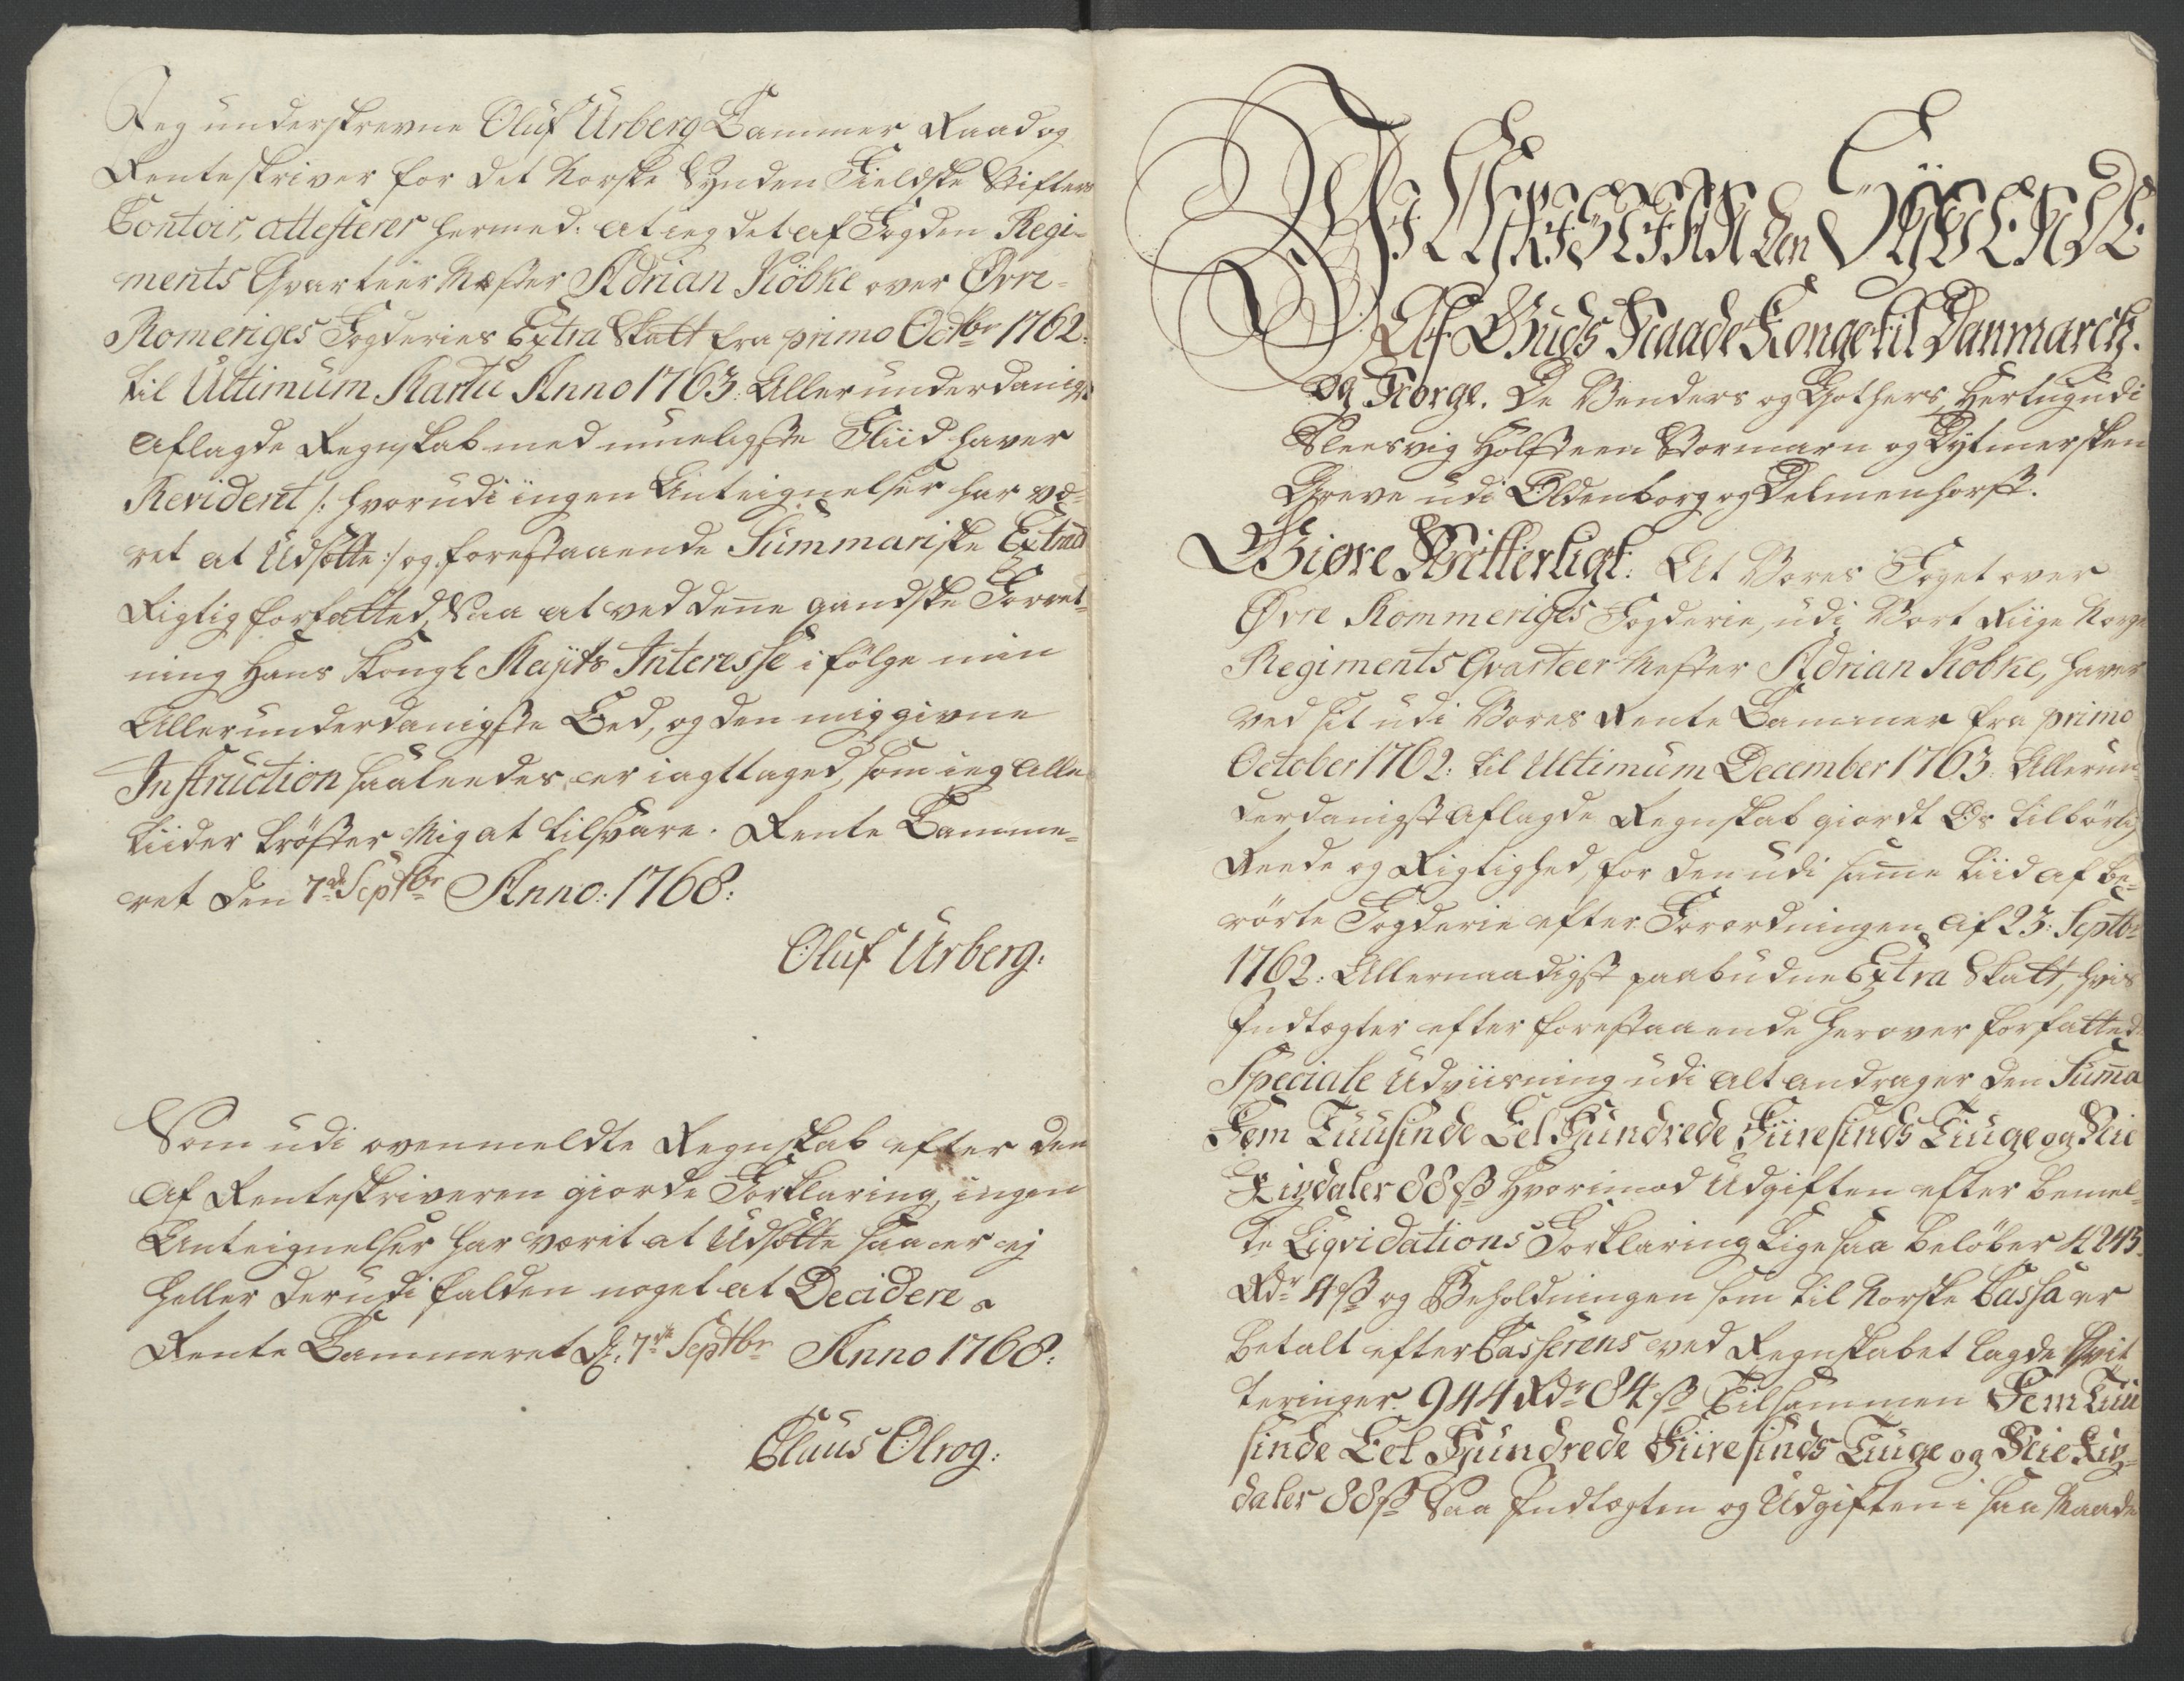 Jeg underskrevne Oluf Urberg Cammer Raad og
Renteskriver for det Norske Synden Fieldske Stifters
Contoir, attesterer hermed: at ieg det af Fogden Regi-
ments Qvarteer Mester Adrian Köbke over Øvre-
Romeriges Fogderies Extra Skatt fra primo Octbr 1762.
til Ultimum Martii Anno 1763. Allerunderdanigst
aflagde Regnskab med mueligste Fliid haver
Revideret /: hvorudi ingen Anteignelser har væ-
ret at Udsætte :/ og forestaaende Summariske Extract
Rigtig forfatted, Saa at ved denne gandske Forret-
ning Hans Kongl Mayts Interesse i fölge min
Allerunderdanigste Eed, og den mig givne
Instruction saaleedes er iagttaged, som ieg alle
tiider tröster Mig at tilsvare. Rente Camme-
ret den 7de Septbr Anno: 1768:
Oluf Urberg.
Som udi ovenmeldte Regnskab efter den
af Renteskriveren giorde Forklaring, ingen
Anteignelser har værit at Udsætte saa er ej
heller derudi falden noget at Decidere
Rente Cammeret D. 7de Septbr Anno 1768:
Claus Olrog:
Wi Christian den Syvende
Af Guds Naade Konge til Danmarch.
og Norge. De Venders og Gothers, Hertug udi
Sleesvig Holsteen Stormarn og Dytmersken
Greve udi Oldenborg og Delmenhorst.
Giøre Witterligt: At Vores Foget over
Øvre Rommeriges Fogderie, udi Vort Riige Norge
Regiments Qvarteer Mester Adrian Köbke, haver
ved sit udi Vores Rente Cammer fra primo
October 1762: til Ultimum December 1763: Allerun-
derdanigst aflagde Regnskab giordt Os tilbörlig
Reede og Rigtighed, for den udi samme tiid af be-
rörte Fogderie efter Forordningen af 23: Septbr
1762: Allernaadigst paabudne Extra Skatt, hvis
Indtægter efter forestaaende herover forfatted
Speciale Udviisning udi alt andrager den Summa
Fem Tuusinde Eet Hundrede Fiiresinds Tiuge og Nie
Rixdaler 88 ß Hvorimod Udgiften efter bemel-
te Liqvidations Forklaring ligesaa belöber 4243.
Rdr 4 ß og Beholdningen som til Norske Cassa er
betalt efter Casserens ved Regnskabet lagde Qvit
teringer 944 Rdr 84 ß Tilsammen Fem Tuu
sinde Eet Hundrede Fiiresinds Tiuge og Nie Rix-
daler 88 ß Saa Indtægten og Udgiften i saa Maade